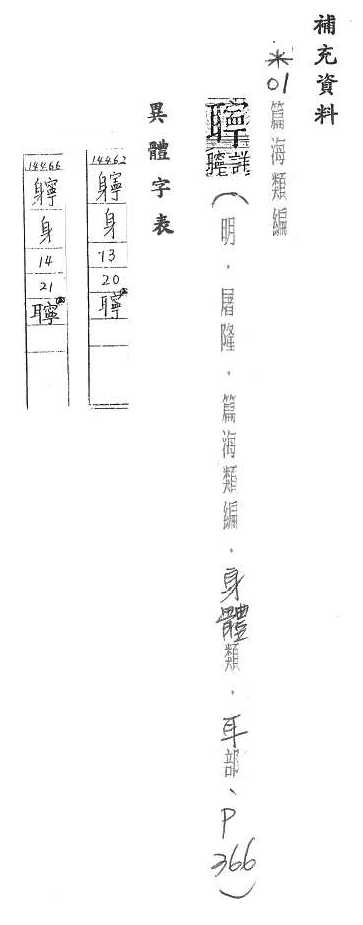 補充資料
※01篇海類編
(明．屠隆．篇海類編．身體類．耳部、P366)
異體字表
14462
身
13
20
聹
14466
身
14
21
聹